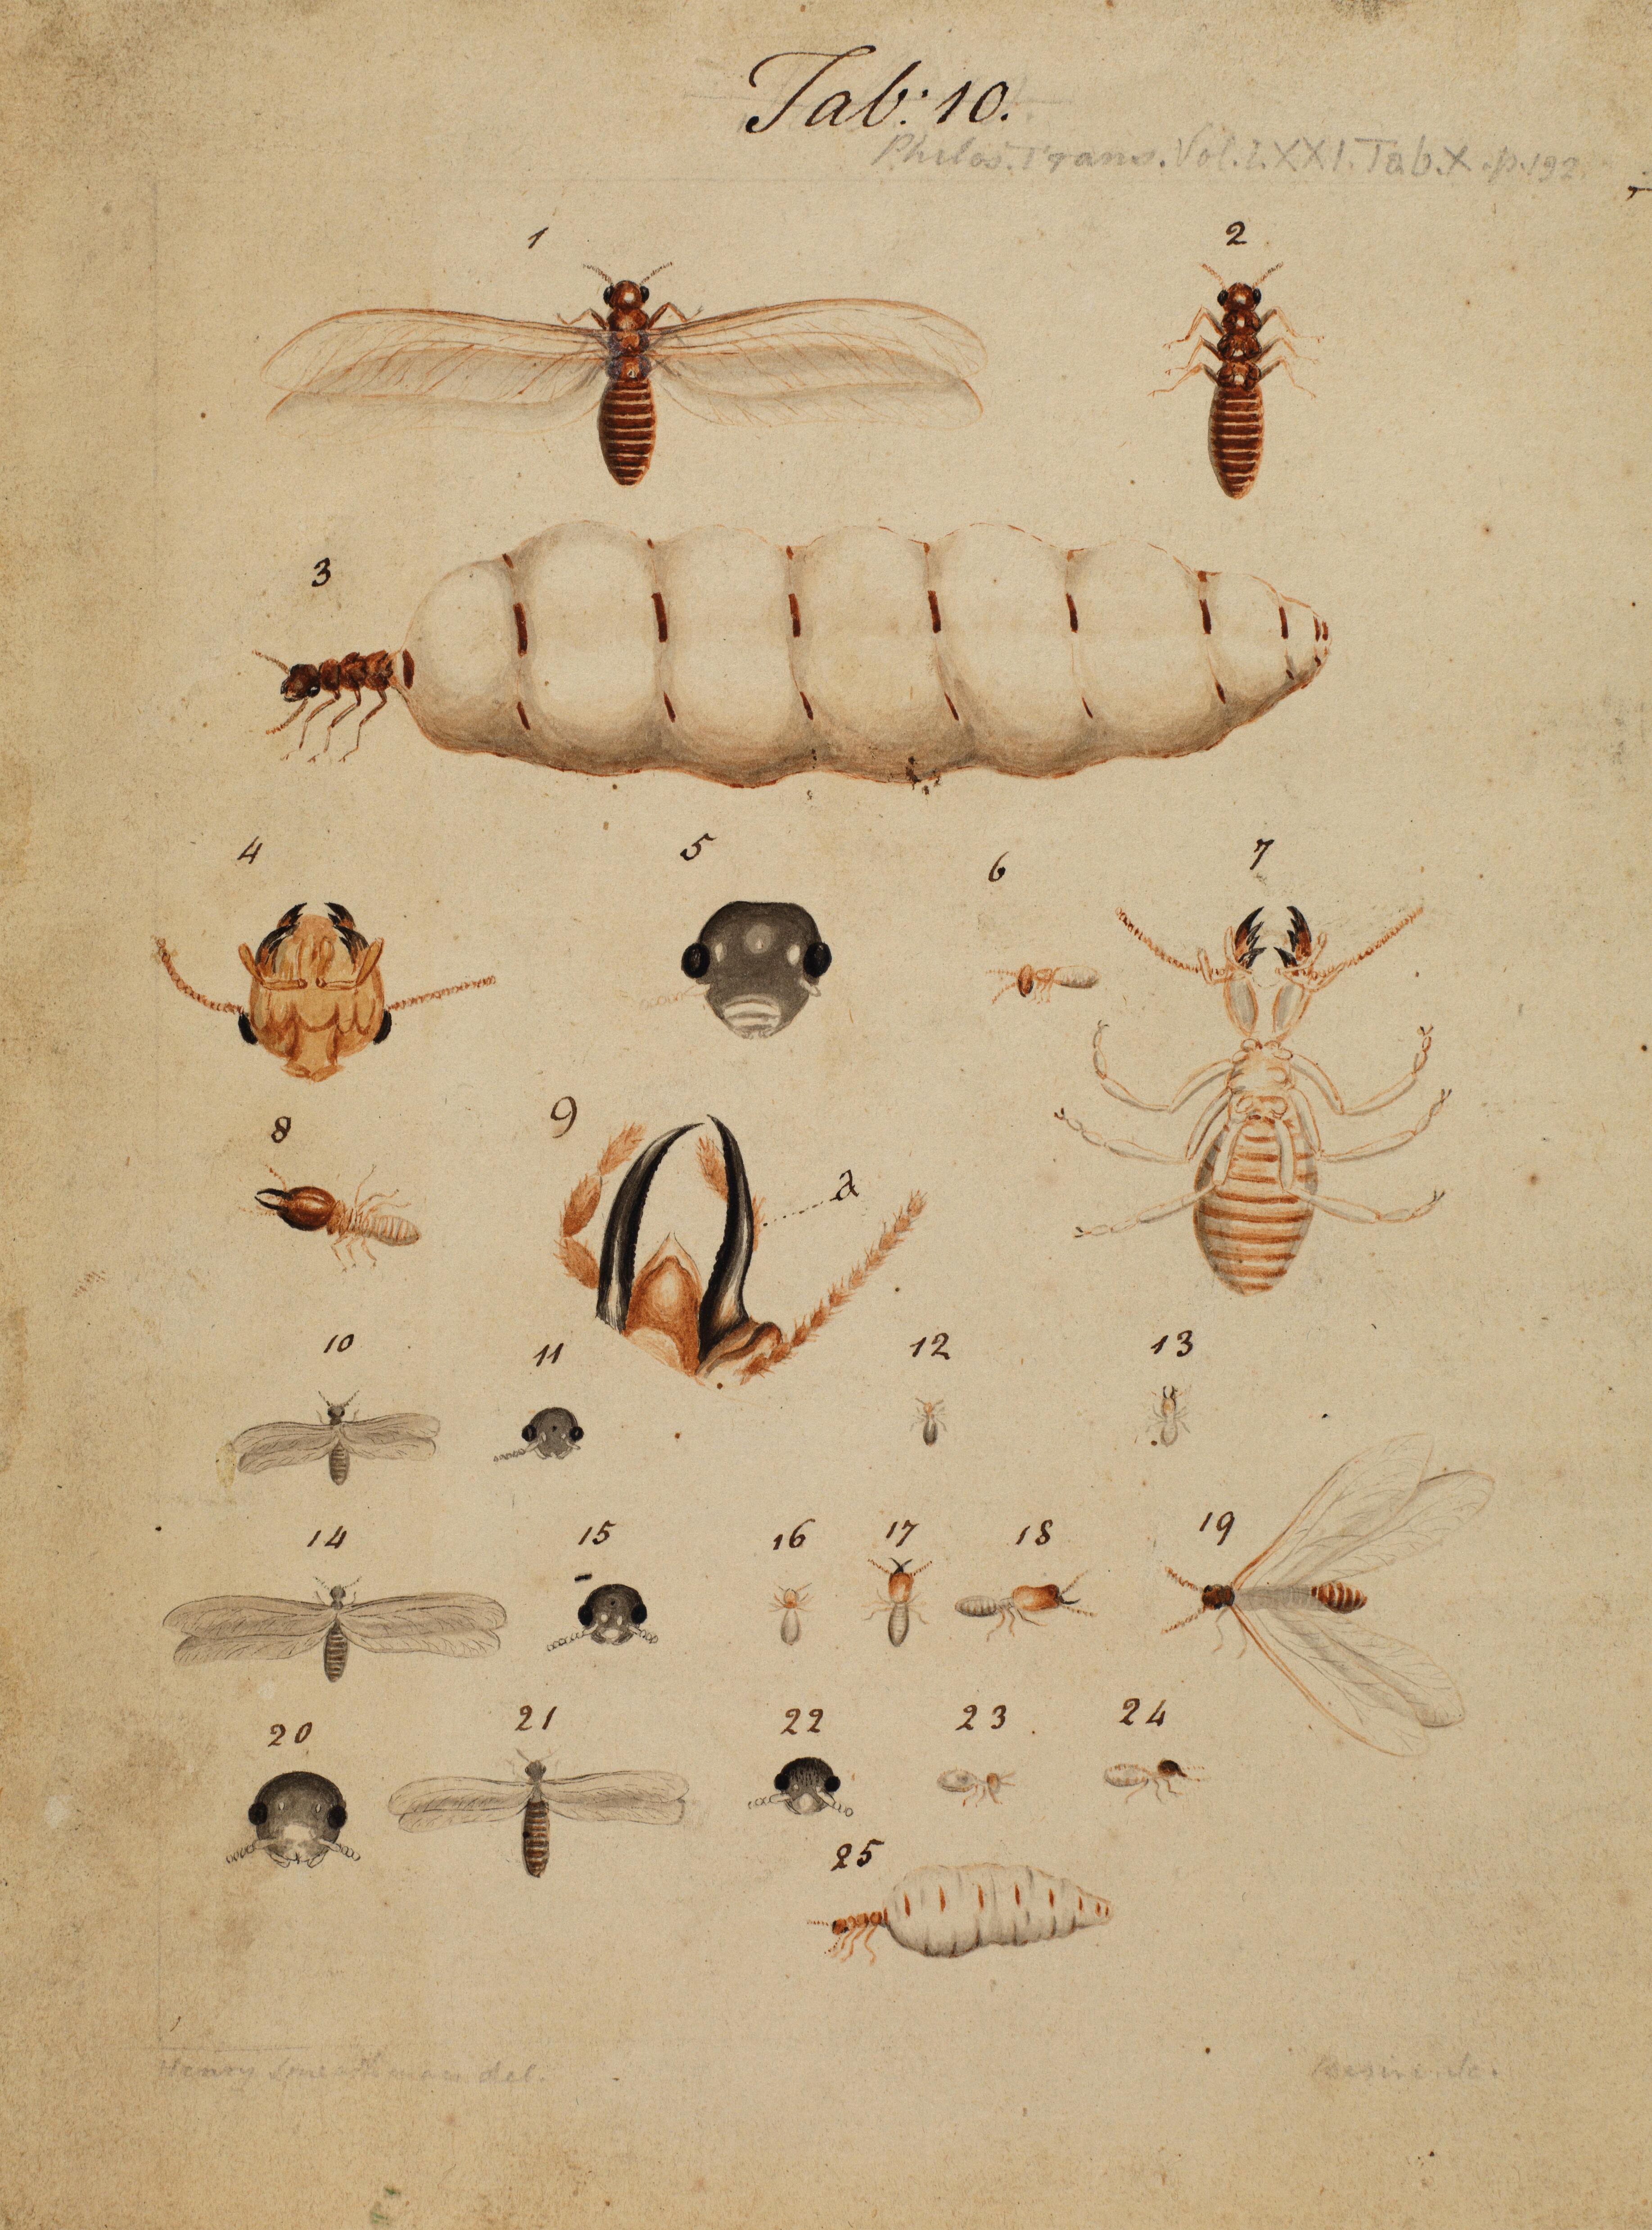 Tab: 10.
Philos. Trans. Vol. LXXI. Tab. X. p. 192.
1 2
3
4 5 6 7
8 9
a
10 11 12 13
14 15 16 17 18 19
20 21 22 23 24
25
Henry Smeathman del. Basire sc.